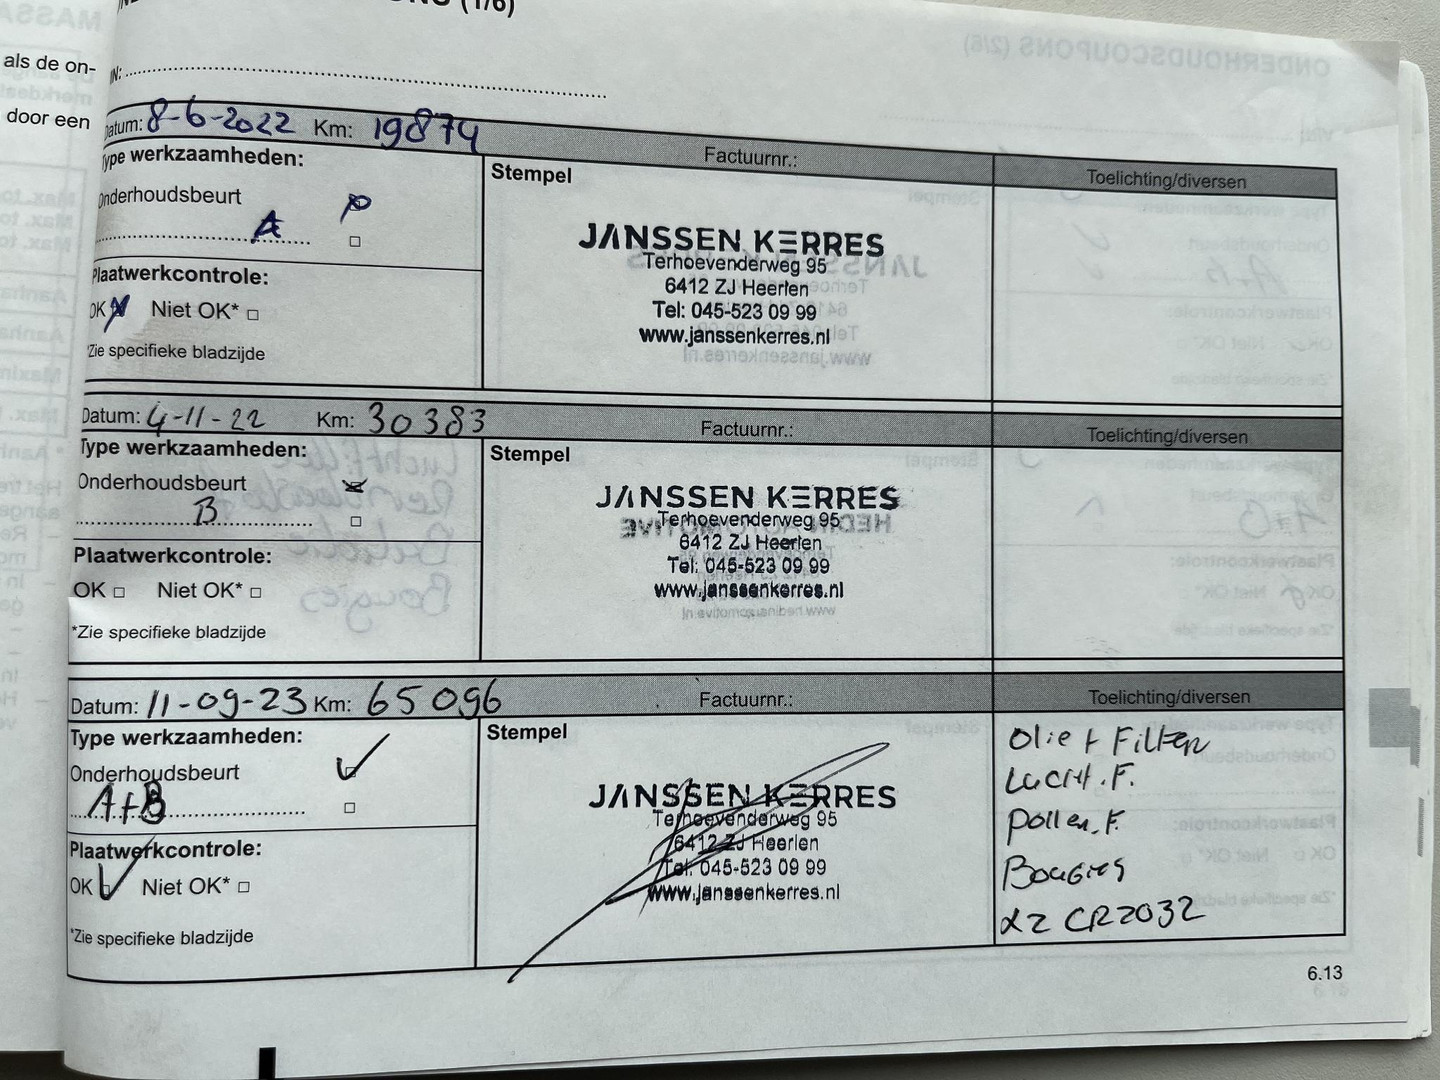 (1/6)
als de on-
door een
Datum: 8-6-2022 Km: 19874
Factuurnr.:
Type werkzaamheden:
Stempel
Toelichting/diversen
Onderhoudsbeurt
A
JANSSEN KERRES
Terhoevenderweg 95
6412 ZJ Heerlen
Tel: 045-523 09 99
www.janssenkerres.nl
Plaatwerkcontrole:
OK Niet OK*
*Zie specifieke bladzijde
Datum: 4-11-22 Km: 30383
Factuurnr.:
Toelichting/diversen
Type werkzaamheden:
Stempel
Onderhoudsbeurt
B
JANSSEN KERRES
Terhoevenderweg 95
6412 ZJ Heerlen
Tel: 045-523 09 99
www.janssenkerres.nl
Plaatwerkcontrole:
OK Niet OK*
*Zie specifieke bladzijde
Datum: 11-09-23 Km: 65096
Factuurnr.:
Toelichting/diversen
Type werkzaamheden:
Stempel
Onderhoudsbeurt
A+B
JANSSEN KERRES
Terhoevenderweg 95
6412 ZJ Heerlen
Tel: 045-523 09 99
www.janssenkerres.nl
Plaatwerkcontrole:
OK Niet OK*
*Zie specifieke bladzijde
Olie + Filter
Lucht.F.
Pollen.F.
Bougies
x2 CR2032
6.13